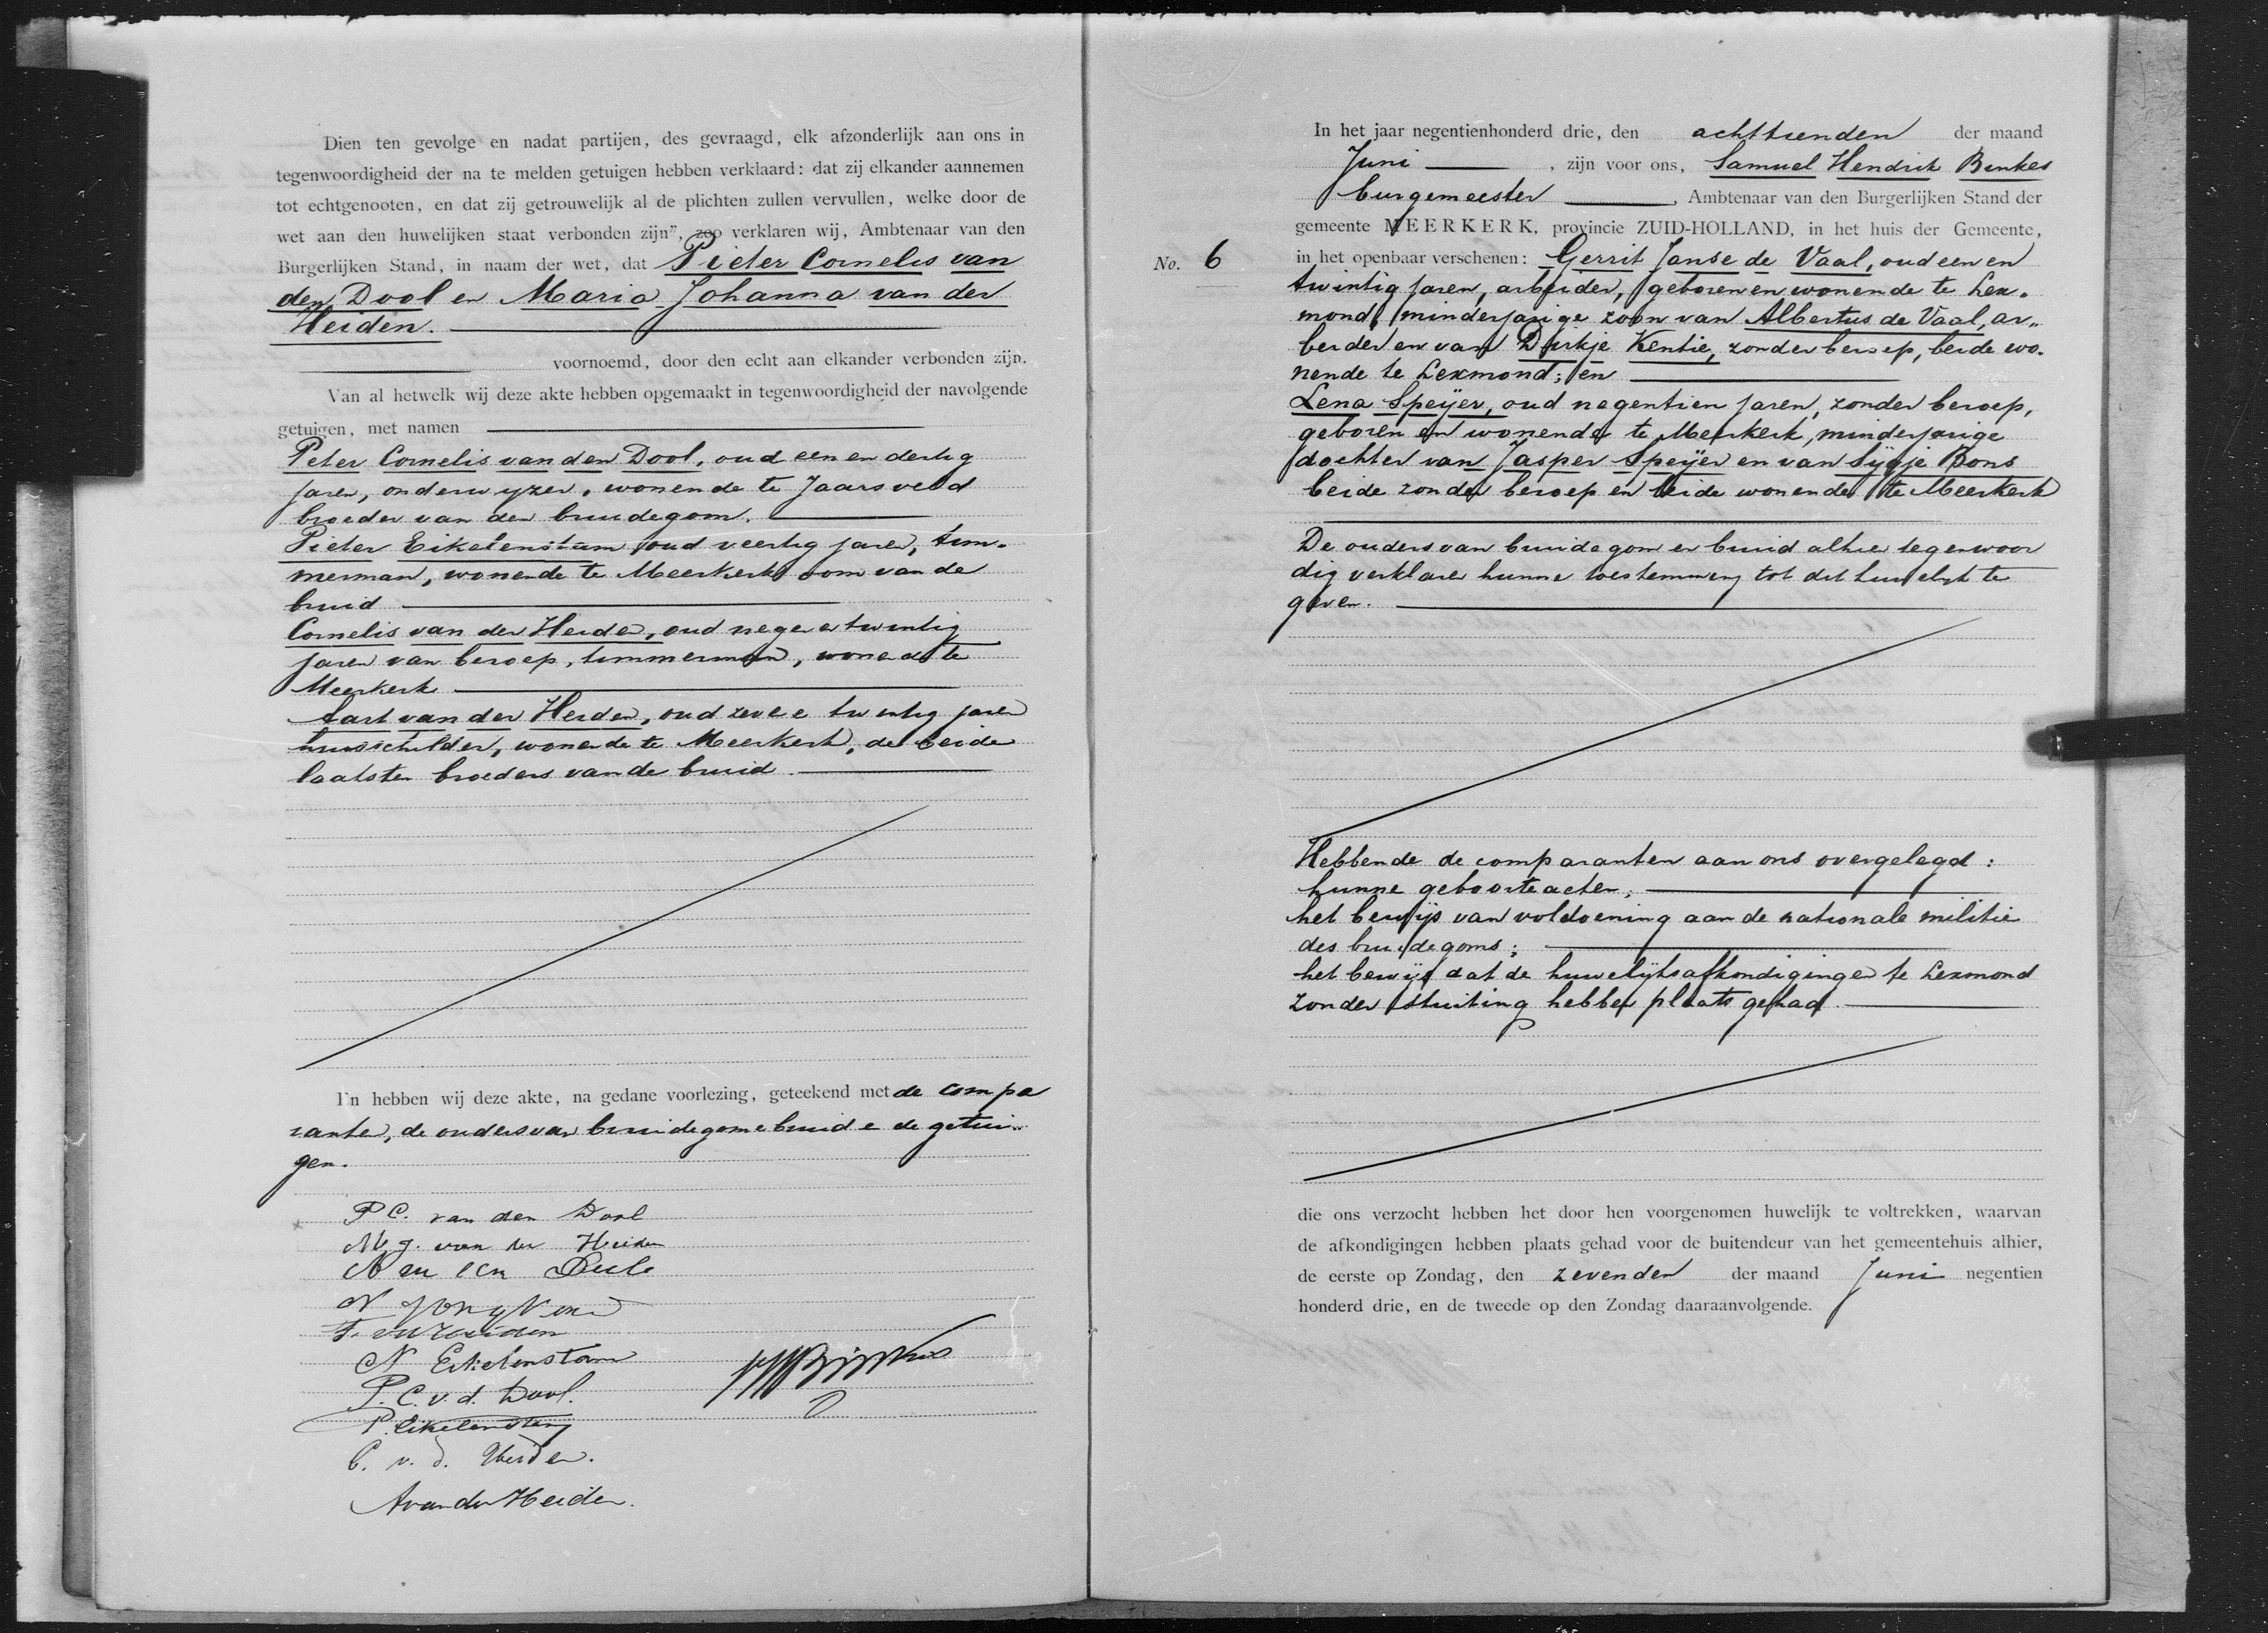 Dien ten gevolge en nadat partijen, des gevraagd, elk afzonderlijk aan ons in
tegenwoordigheid der na te melden getuigen hebben verklaard: dat zij elkander aannemen
tot echtgenooten, en dat zij getrouwelijk al de plichten zullen vervullen, welke door de
wet aan den huwelijken staat verbonden zijn", zoo verklaren wij, Ambtenaar van den
Burgerlijken Stand, in naam der wet, dat Pieter Cornelis van
den Dool en Maria Johanna van der
Heiden.
voornoemd, door den echt aan elkander verbonden zijn.
Van al hetwelk wij deze akte hebben opgemaakt in tegenwoordigheid der navolgende
getuigen, met namen
Peter Cornelis van den Dool, oud een en dertig
jaren, onderwyzer, wonende te Jaarsveld
broeder van den bruidegom.
Pieter Eikelenstam oud veertig jaren, tim-
merman, wonende te Meerkerk oom van de
bruid
Cornelis van der Heiden, oud negen e twintig
jaren van beroep, timmerman, wonende te
Meerkerk
Aart van der Heiden, oud zeve e twintig jaren
huisschilder, wonende te Meerkerk, de beide
laatsten broeders van de bruid.
En hebben wij deze akte, na gedane voorlezing, geteekend met de compa
ranten, de ouders van bruidegom e bruid e de getui-
gen.
P C. van den Dool
M. J. van der Heiden
N Eikelenstam
P. C. v. d. Dool.
P. Eikelenstam
C. v. d. Heiden.
A van der Heiden.
In het jaar negentienhonderd drie, den achttienden der maand
Juni, zijn voor ons, Samuel Hendrik Binkes
burgemeester, Ambtenaar van den Burgerlijken Stand der
gemeente MEERKERK, provincie ZUID-HOLLAND, in het huis der Gemeente,
No. 6 in het openbaar verschenen: Gerrit Janse de Vaal, oud een en
twintig jaren, arbeider, geboren en wonende te Lex-
mond, minderjarige zoon van Albertus de Vaal, ar-
beider en van Dirkje Kentie, zonder beroep, beide wo-
nende te Lexmond; en
Lena Speijer, oud negentien jaren, zonder beroep,
geboren en wonende te Meerkerk, minderjarige
dochter van Jasper Speijer en van Sijgje Pons
beide zonder beroep en beide wonende te Meerkerk
De ouders van bruidegom en bruid alhier tegenwoor
dig verklaren hunne toestemming tot dit huwelijk te
geven.
Hebbende de comparanten aan ons overgelegd:
hunne geboorteacten;
het bewijs van voldoening aan de nationale militie
des bruidegoms;
het bewijs dat de huwelijksafkondigingen te Lexmond
zonder stuiting hebben plaats gehad
die ons verzocht hebben het door hen voorgenomen huwelijk te voltrekken, waarvan
de afkondigingen hebben plaats gehad voor de buitendeur van het gemeentehuis alhier,
de eerste op Zondag, den zevenden der maand Juni negentien
honderd drie, en de tweede op den Zondag daaraanvolgende.